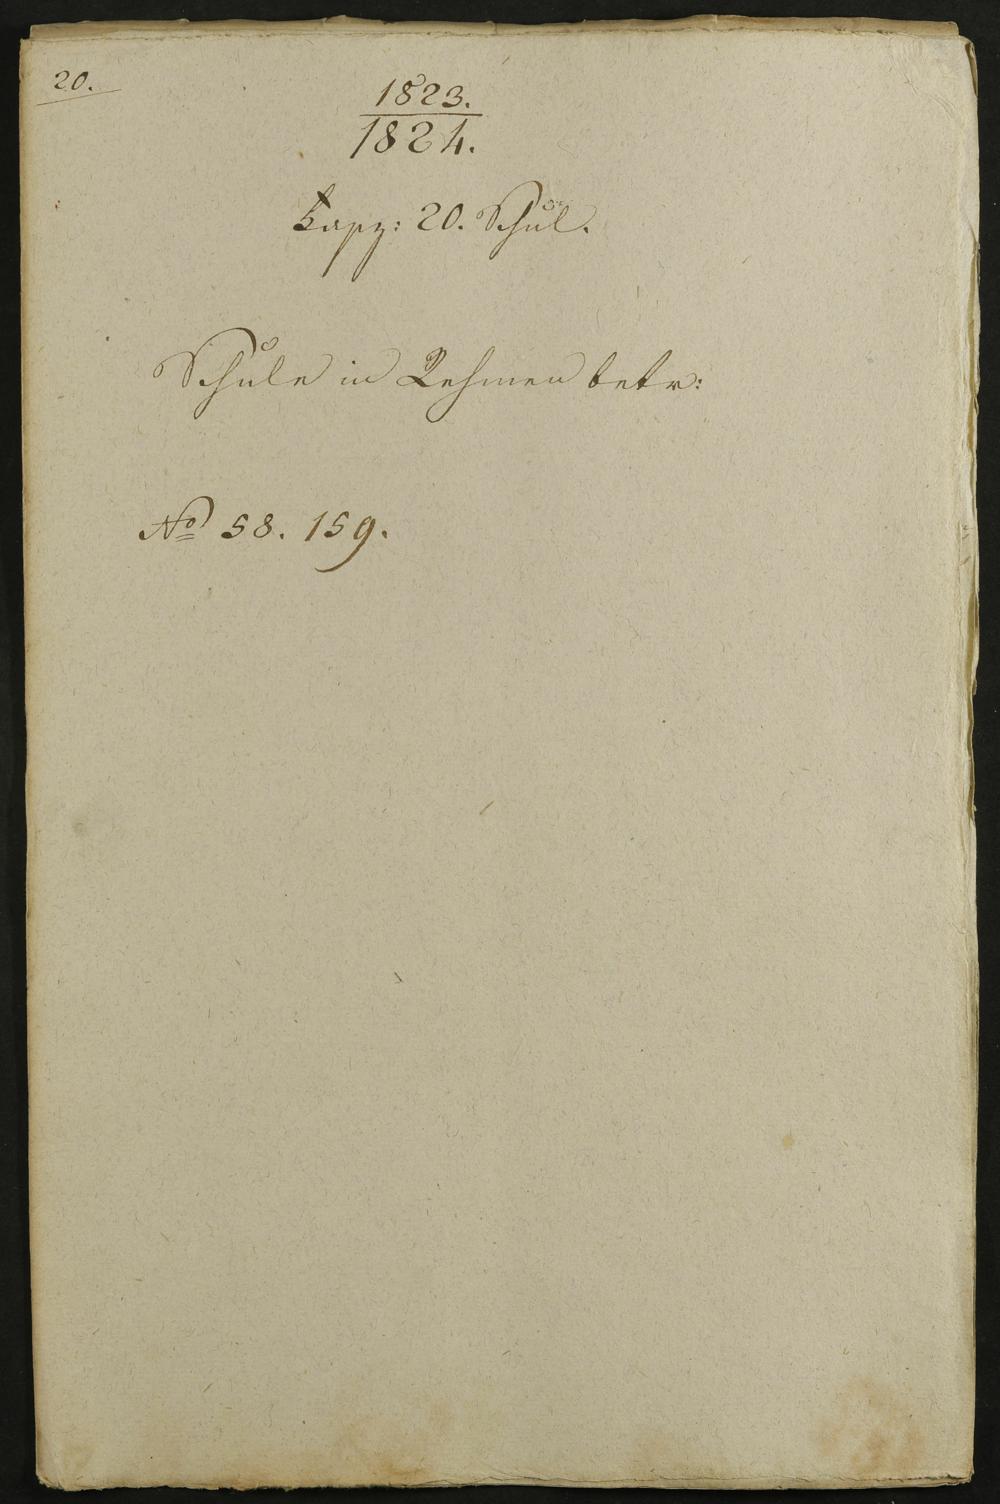 20.
1823.
1824.
Fasz: 20. Schul.
Schule in Rehmen betr:
No 58. 159.